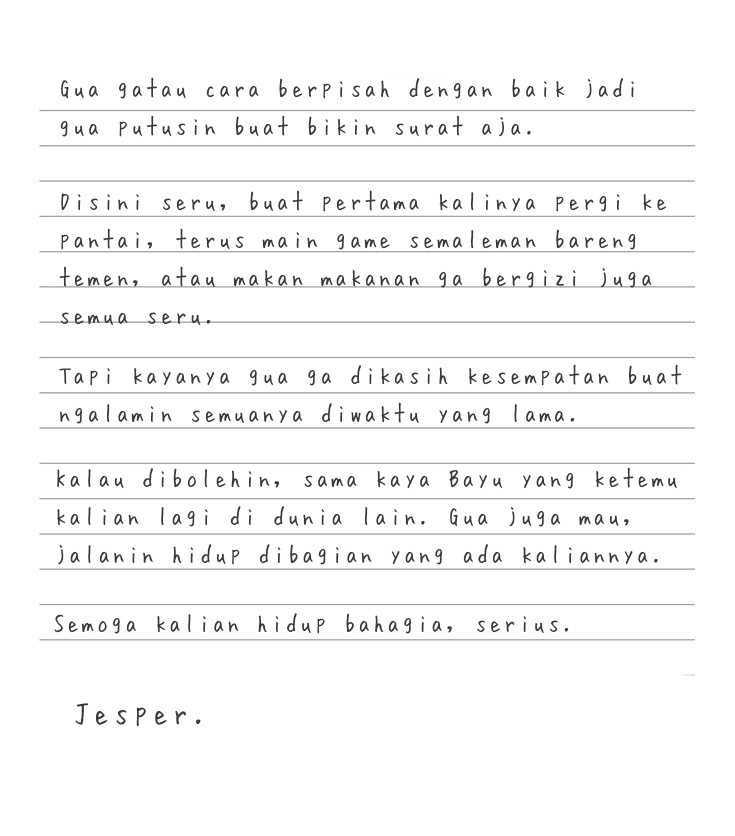 Gua gatau cara berpisah dengan baik jadi
gua putusin buat bikin surat aja.
Disini seru, buat pertama kalinya pergi ke
pantai, terus main game semaleman bareng
temen, atau makan makanan ga bergizi juga
semua seru.
Tapi kayanya gua ga dikasih kesempatan buat
ngalamin semuanya diwaktu yang lama.
kalau dibolehin, sama kaya Bayu yang ketemu
kalian lagi di dunia lain. Gua juga mau,
jalanin hidup dibagian yang ada kaliannya.
Semoga kalian hidup bahagia, serius.
Jesper.